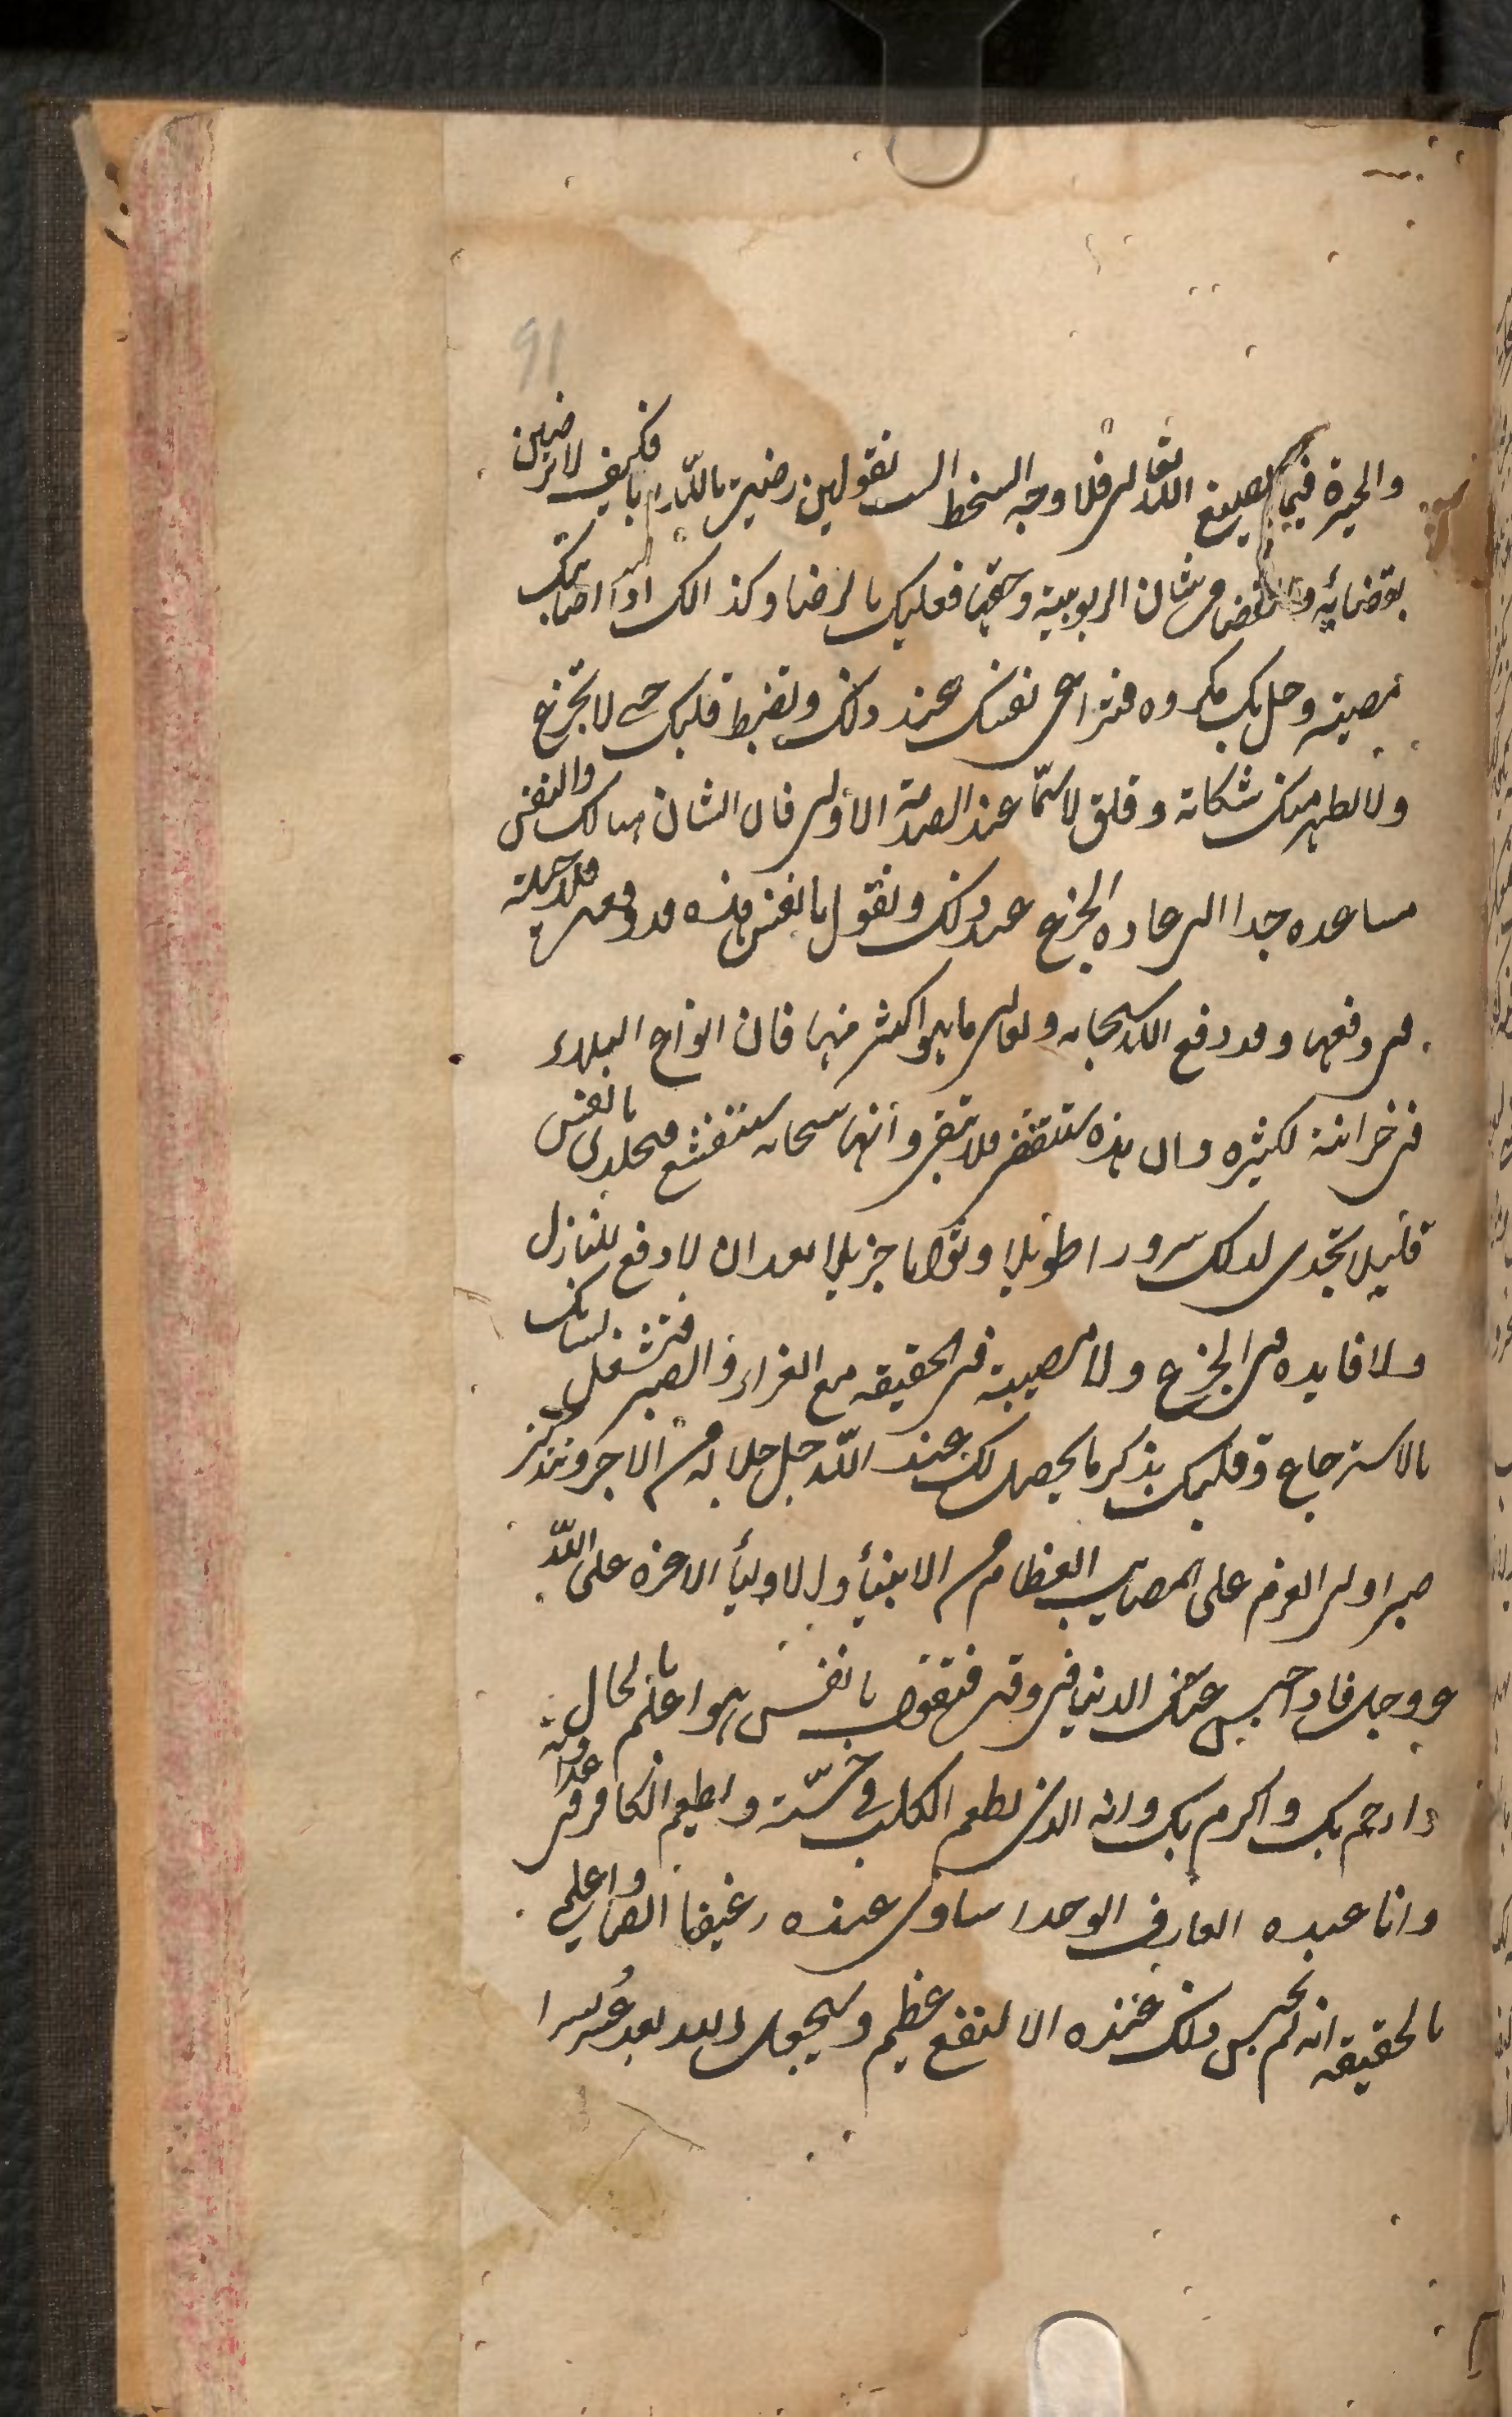 91
والخيرة فيما يصنع الله تعالى فلا وجه للسخط الست تقولين رضيت بالله ربا فكيف لا ترضين
بقضائه والقضا من شان الربوبية وحقها فعليك بالرضا وكذالك اذا اصابتك
مصيبة وحل بك مكروه فتراعى نفسك عند ذلك وتضبط قلبك حتى لا تجزع
ولا تظهر منك شكاة وقلق لا سيّما عند الصدمة الأولى فان الشان هنالك والنفس
مساعده جدا الى عاده الجزع عند ذلك وتقول يا نفس هذه قد وقعت فلا حيلة
فى دفعها وقد دفع الله سبحانه وتعالى ما هو اكثر منها فان انواع البلاء
فى خزائنه لكثيره وان هذه ستنقضى فلا تبقى وانها سحابه ستنقشع فتجلدى يا نفس
قليلا تجدى لذلك سرورا طويلا وثوابا جزيلا بعد ان لا دفع للنازل
ولا فايده فى الجزع ولا مصيبة فى الحقيقه مع العزاء والصبر فتشغل لسانك
بالاسترجاع وقلبك بذكر ما يحصل لك عند الله جل جلاله من الاجر وتتذكر
صبر اولى العزم على المصايب العظام من الانبيأ والاوليأ الاعزه على الله
عز وجل فاذا حبس عنك الدنيا فى وقت فتقول يا نفس هو اعلم بالحال
وارحم بك واكرم بك وانه الذى يطعم الكلب فى خسّته ويطعم الكافر فى عداوته
وانا عبده العارف الموحد اساوى عنده رغيفا الصا واعلمى
بالحقيقه انه لم يحبس ذلك عنده الا لنفع عظيم وسيجعل الله بعد عُسر يسرا